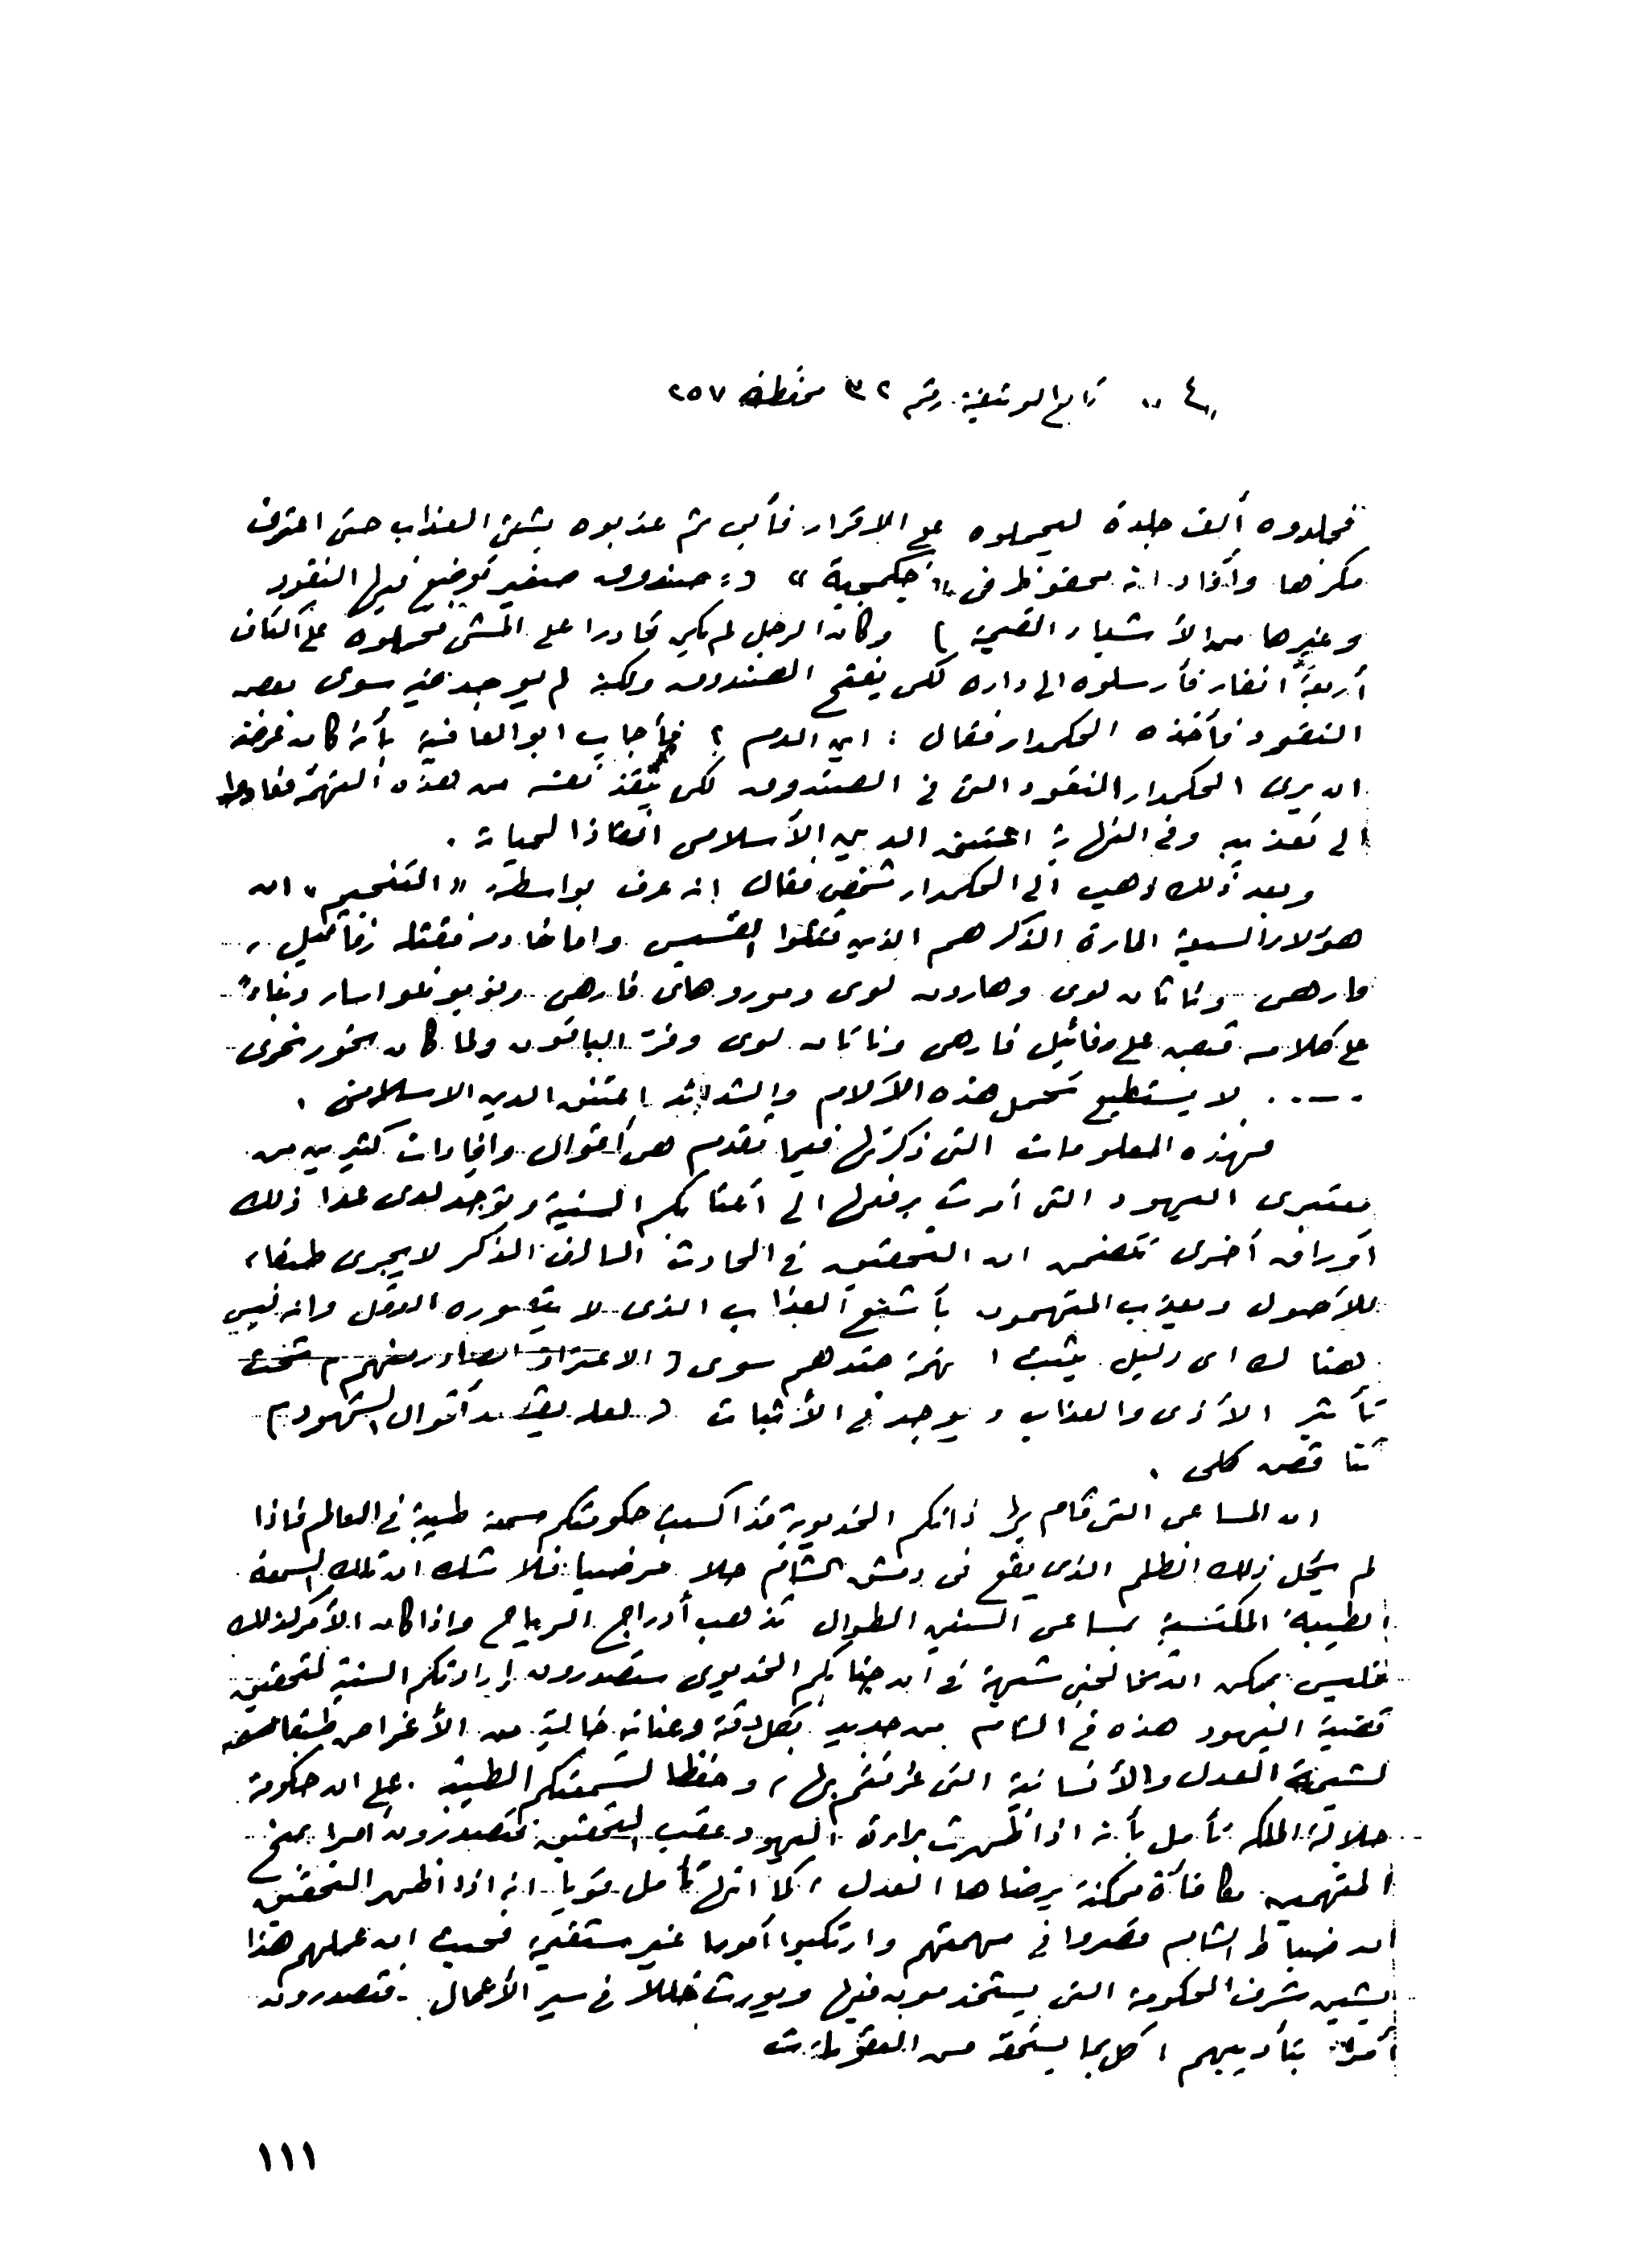 « ٤ » تابع الوثيقة رقم ٣٢ محفظة ٢٥٧
فجلدوه ألف جلدة ليحملوه على الاقرار فأبى ثم عذبوه بشتى العذاب حتى اعترف
مكرها وأفاد انه محفوظ فى « جكمجية » ( = صندوق صغير توضع فيها النقود
وغيرها من الأشياء القيمة ) وكان الرجل لم يكن قادرا على المشى فحملوه على أكتاف
أربعة انفار فأرسلوه الى داره لكى يفتح الصندوق ولكنه لم يوجد فيه سوى بعض
النقود فأخذه الحكمدار فقال : اين الدم ؟ فأجاب ابو العافية بأنه كان غرضه
ان يرى الحكمدار النقود التى فى الصندوق لكى ينقذ نفسه من هذه التهمة فعادوا
الى تعذيبه وفى النهاية اعتنق الدين الأسلامى انقاذا لحياته .
وبعد ذلك ذهب الى الحكمدار شخص فقال انه عرف بواسطة « التنجيم » ان
هؤلاء السبعة المارة الذكر هم الذين قتلوا القسيس واما خادمه فقتله رفائيل ،
فارهى وناتان لوى وهارون لوى ومورو هاى فارهى وبناء
على كلامه قبض على رفائيل فارهى وناتان لوى وفر الباقون ولما كان
..... لا يستطيع تحمل هذه الآلام والشدائد اعتنق الدين الاسلامى .
فهذه المعلومات التى ذكرتها فيما تقدم هى أقوال وافادات كثيرين من
معتبرى اليهود التى أمرت برفعها الى أعتابكم السنية وتوجد لدى عدا ذلك
اوراق أخرى تتضمن ان التحقيق فى الحادث السالف الذكر لا يجرى طبقا ،
للأصول ويعذب المتهمون بأشنع العذاب الذى لا يتصوره العقل وانه ليس
هنالك اى دليل يثبت تهمة ضدهم سوى ( الاعتراف الصادر منهم ) تحت
تأثير الأذى والعذاب ويوجد فى الأثبات ( لعله يقصد أقوال الشهود )
تناقض كلى .
ان المساعى التى قام بها ذاتكم الخديوية قد اكسبت حكومتكم سمعة طيبة فى العالم فاذا
لم يحل ذلك الظلم الذى يقع فى دمشق الشام حلا مرضيا فلا شك ان تلك السمعة
الطيبة المكتسبة بمساعى السنين الطوال تذهب أدراج الرياح واذا كان الأمر كذلك
فليس يمكن ان تخالجنى شبهة فى ان جنابكم الخديوى ستصدرون ارادتكم السنية لتحقيق
قضية اليهود هذه فى الشام من جديد بكل دقة وعناية خالية من الأغراض طبقا
لشيمة العدل والأنسانية التى عرفتم بها ، وحفظا لسمعتكم الطيبة . على ان حكومة
جلالة الملكه تأمل بأنه اذا ظهرت براءة اليهود عقب التحقيق فتصدرون امرا بمنح
المتهمين مكافأة ممكنة يرضاها العدل ، كما انها تأمل قويا انه اذا اظهر التحقيق
ان ضباط الشام قصروا فى مهمتهم وارتكبوا أمورا غير مستقيمة فحيث ان عملهم هذا
يشين شرف الحكومة التى يستخدمون فيها ويورث خللا فى سير الأعمال . فتصدرون
أمرا بتأديبهم ، كل بما يستحقه من العقوبات
١١١